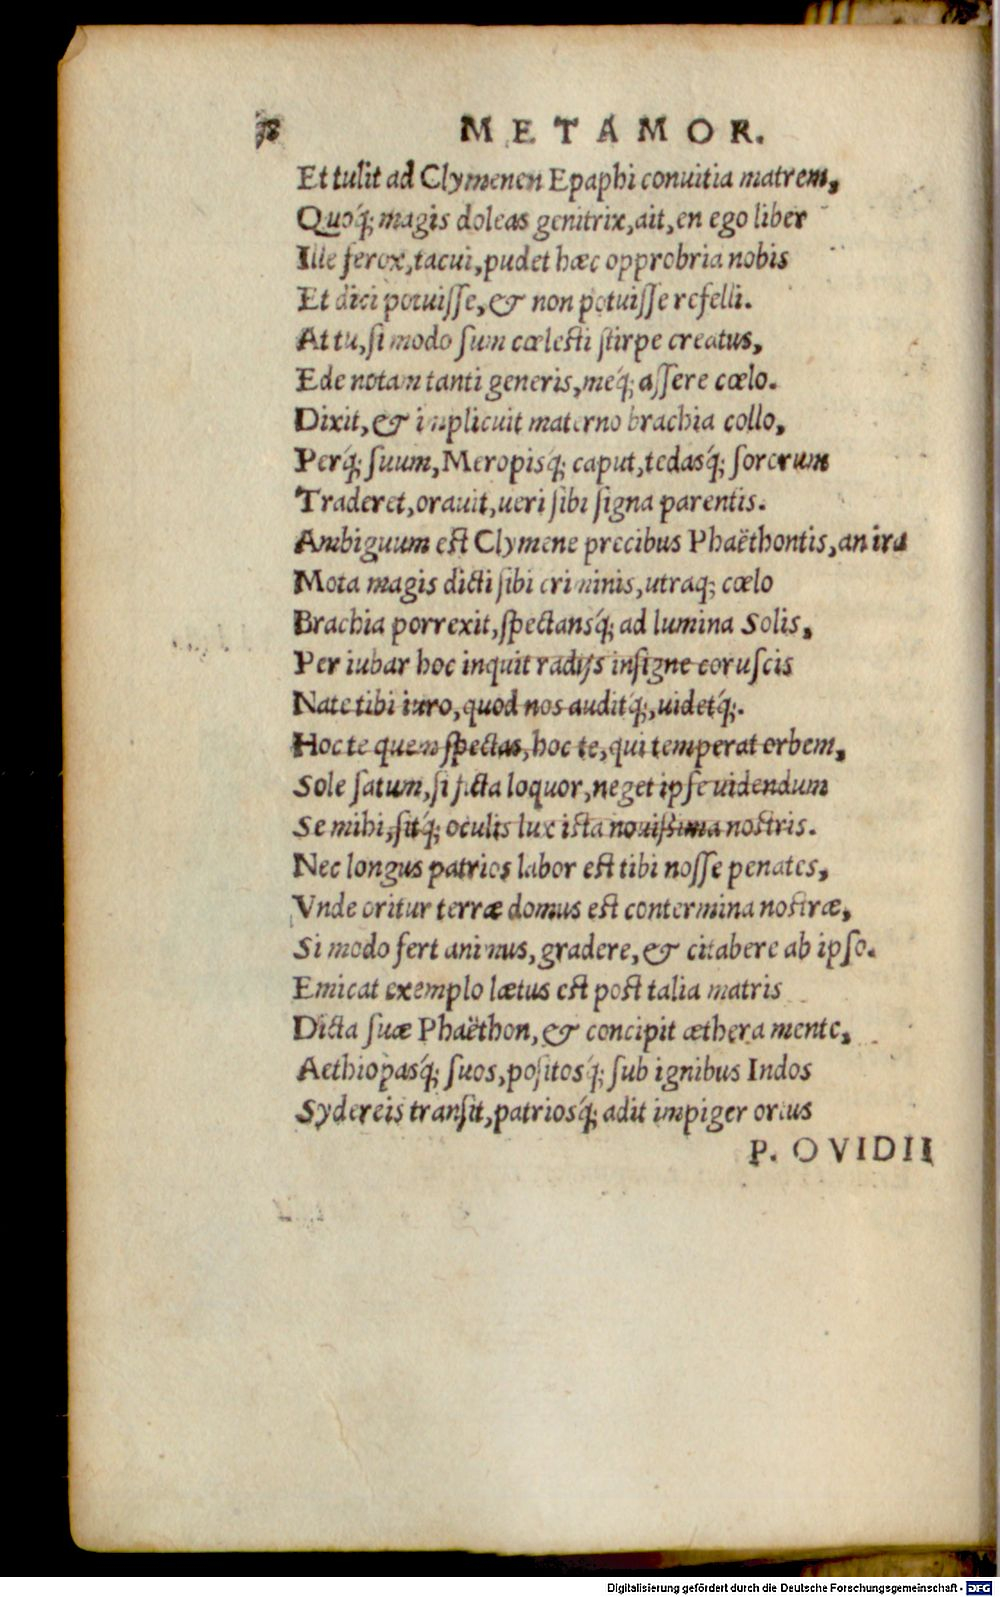 METAMOR.
Et tulit ad Clymenen Epaphi conuitia matrem,
Quoq́; magis doleas genitrix, ait, en ego liber
Ille ferox, tacui, pudet hæc opprobria nobis
Et dici potuiſſe, & non potuiſſe refelli.
At tu, ſi modo ſum cœleſti ſtirpe creatus,
Ede notam tanti generis, meq́; aſſere cœlo.
Dixit, & implicuit materno brachia collo,
Perq́; ſuum, Meropisq́; caput, tedasq́; ſororum
Traderet, orauit, ueri ſibi ſigna parentis.
Ambiguum eſt Clymene precibus Phaëthontis, an ira
Mota magis dicti ſibi criminis, utraq; cœlo
Brachia porrexit, ſpectansq́; ad lumina Solis,
Per iubar hoc inquit radijs inſigne coruſcis
Nate tibi iuro, quod nos auditq́;, uidetq́;.
Hoc te quem ſpectas, hoc te, qui temperat orbem,
Sole ſatum, ſi ficta loquor, neget ipſe uidendum
Se mihi, ſitq́; oculis lux iſta nouiſsima noſtris.
Nec longus patrios labor eſt tibi noſſe penates,
Vnde oritur terræ domus eſt contermina noſtræ,
Si modo fert animus, gradere, & citabere ab ipſo.
Emicat exemplo lætus eſt poſt talia matris
Dicta ſuæ Phaëthon, & concipit æthera mente,
Aethiopasq́; ſuos, poſitosq́; ſub ignibus Indos
Sydereis tranſit, patriosq́; adit impiger ortus
P. OVIDII
Digitalisierung gefördert durch die Deutsche Forschungsgemeinschaft - DFG